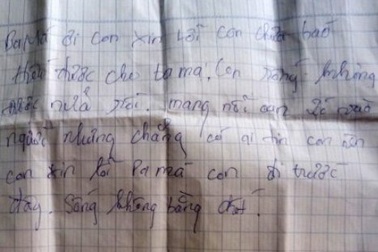 Ba má ơi con xin lỗi con chưa báo
hiếu được cho ba má. Con sống không
được nữa rồi. mang nỗi oan
người nhưng chẳng có ai tin con ơn
con xin lỗi Pa má con đi trước
đây. Sống không bằng chết.